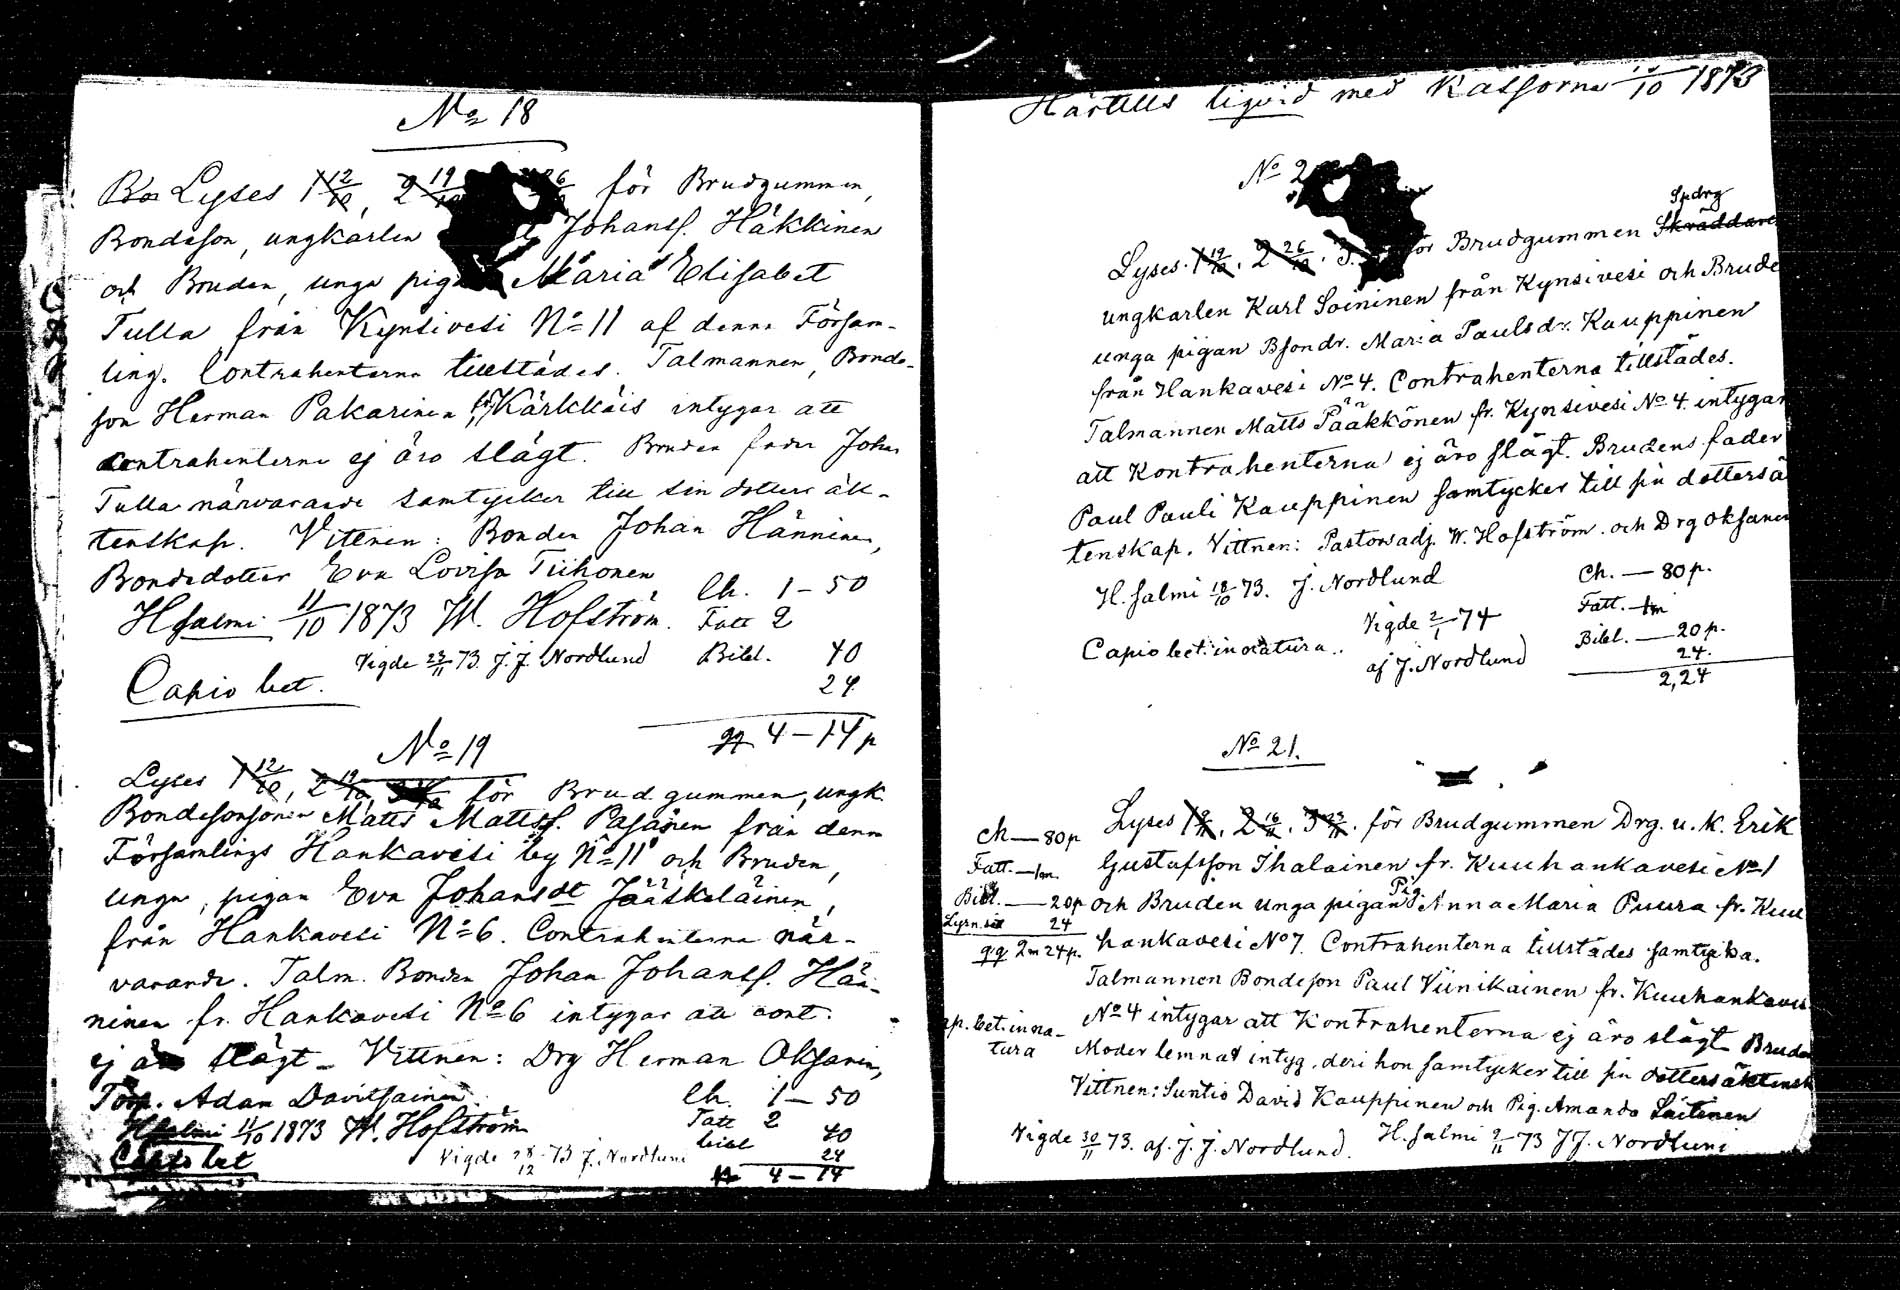 No 18
Lyses 1 12/10, 2 19/10 26 för Brudgummen,
Bondeson, ungkarlen Johanss. Häkkinen
och Bruden, unga pigan Maria Elisabet
Tulla från Kynsivesi No 11 af denna Försam-
ling. Contrahenterna tillstädes. Talmannen, Bonde-
son Herman Pakarinen fr. Kärkkäis intygar att
contrahenterna ej äro slägt. Bruden fader Johan
Tulla närvarande samtycker till sin dotters äk-
tenskap. Vittnen: Bonden Johan Hänninen,
Bondedotter Eva Lovisa Tiihonen
Ch. 1-50
H.salmi 11/10 1873 W. Hofström.
Fatt 2
Vigde 23/11 73. J. J. Nordlund
Bibl. 40
Capio bet.
24
gg 4-14 p
No 19
Lyses 1 12/10, 2 19/10, för Brudgummen, ungk.
Bondesonsonen Matts Mattss. Pasanen från denna
Församlings Hankavesi by No 11 och Bruden,
unga, pigan Eva Johansdt Jääskeläinen,
från Hankavesi No 6. Contrahenterna när-
varande. Talm. Bonden Johan Johanss. Hän-
ninen fr. Hankavesi No 6 intygar att cont.
ej äro slägt - Vittnen: Drg Herman Oksanen,
Torp. Adam Davitsainen.
Ch. 1-50
H.salmi 11/10 1873 W. Hofström
Fatt 2
bibl 40
Capio bet
Vigde 28/12 73 J. Nordlund
24
4-14
Härtills liqvid med Kassorna 10 1873
No 2
Lyses 1 19/10. 2 26/10. 3. för Brudgummen Skräddare Spdrg
ungkarlen Karl Soininen från Kynsivesi och Brude
unga pigan Bsondr. Maria Paulsdr. Kauppinen
från Hankavesi No 4. Contrahenterna tillstädes.
Talmannen Matts Pääkkönen fr. Kynsivesi No 4. intygar
att Kontrahenterna ej äro slägt. Brudens fader
Paul Pauli Kauppinen samtycker till sin dottersä
tenskap. Vittnen: Pastorsadj. W. Hofström. och Drg Oksanen
H.salmi 18/10 73. J. Nordlund
Ch. — 80 p.
Fatt. — 1m
Vigde 2/1 74
Bibl. — 20 p.
Capio bet. in natura..
af J. Nordlund
24.
2,24
No 21.
Lyses 1 9/11, 2 16/11. 3 23/11. för Brudgummen Drg. u. k. Erik
Ch — 80 p
Gustafsson Ihalainen fr. Kuuhankavesi No 1
Fatt. — 1m.
och Bruden unga pigan Pig. Anna Maria Puura fr. Kuu
Bibl. — 20 p
24
hankavesi No 7. Contrahenterna tillstädes samtycka.
gg 2m 24 p.
Talmannen Bondeson Paul Viinikainen fr. Kuuhankaves
No 4 intygar att Kontrahenterna ej äro slägt Bruden
ap. bet. in na-
tura
Moder lemnat intyg, deri hon samtycker till sin dottersäktensk
Vittnen: Suntio David Kauppinen och Pig. Amanda Laitinen
Vigde 30/11 73. af. J. J. Nordlund.
H.salmi 9/11 73 J J. Nordlund